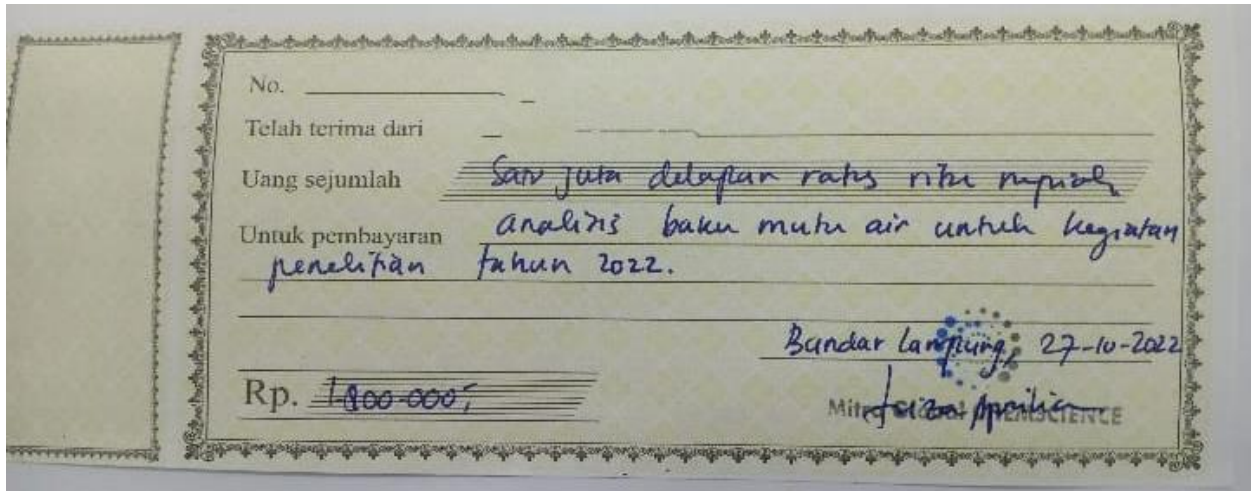 No.
Telah terima dari
Uang sejumlah Satu juta delapan ratus ribu rupiah
Untuk pembayaran analisis baku mutu air untuk kegiatan
penelitian tahun 2022.
Bandar Lampung, 27-10-2022
Rp. 1.800.000,-
Mitra Aprilia SCIENCE